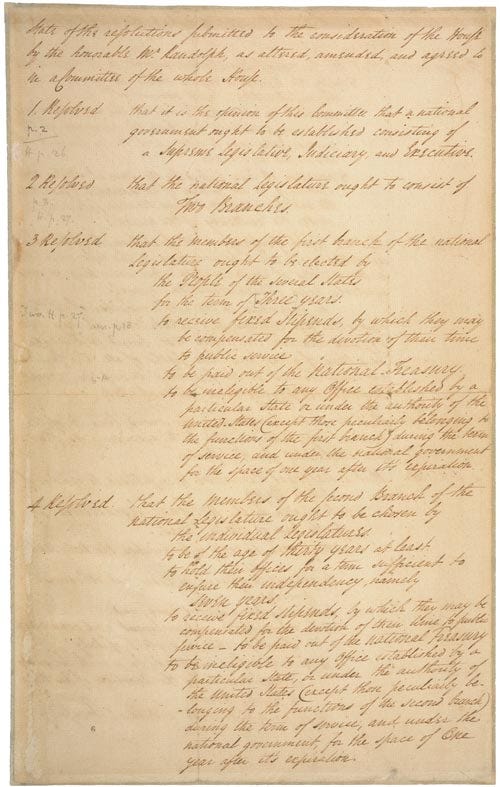 State of the resolutions submitted to the consideration of the House
by the honorable Mr. Randolph, as altered, amended, and agreed to
in a Committee of the whole House.
1. Resolved that it is the opinion of this Committee that a national
p. 2
government ought to be established consisting of
a Supreme Legislative, Judiciary, and Executive.
H p. 26
2 Resolved that the national Legislature ought to consist of
p. 3.
Two Branches.
p. 27.
3 Resolved that the members of the first branch of the national
Legislature ought to be elected by
the People of the several States
for the term of Three years.
to receive fixed Stipends, by which they may
be compensated for the devotion of their time
to public service
to be paid out of the National-Treasury.
to be ineligible to any Office established by a
particular State or under the authority of the
United States (except those peculiarly belonging to
the functions of the first branch) during the term
of service, and under the national government
for the space of one year after it's expiration.
4 Resolved that the members of the second Branch of the
national Legislature ought to be chosen by
the individual Legislatures.
to be of the age of thirty years at least.
to hold their offices for a time sufficient to
ensure their independency, namely
seven years.
to receive fixed stipends, by which they may be
compensated for the devotion of their time to public
service - to be paid out of the National Treasury
to be ineligible to any Office established by a
particular State, or under the authority of
the United States (except those peculiarly be-
-longing to the functions of the second branch)
during the term of service, and under the
national government, for the space of One
year after it's expiration.
6